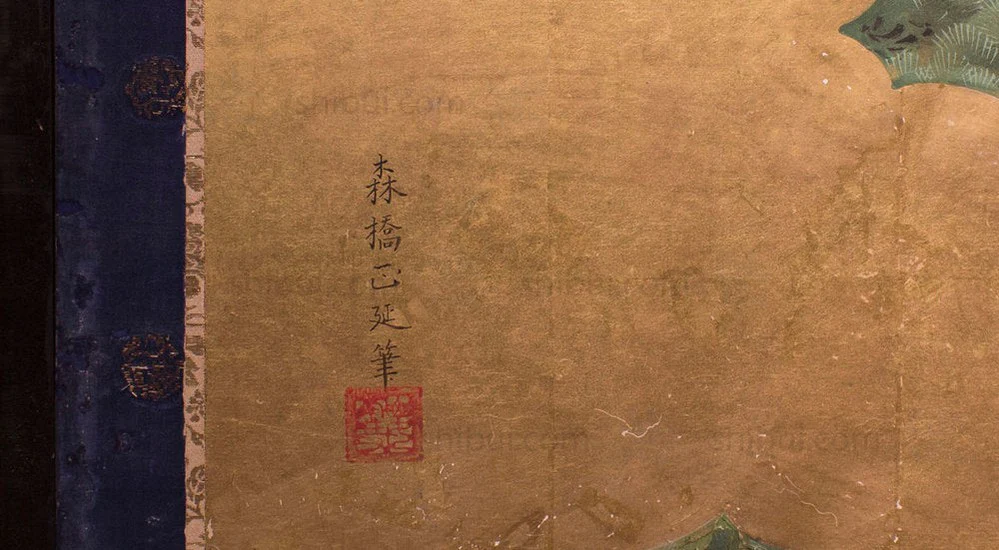 shibui.com
森橋正延筆
shibui.com
shibui.com
shibui.com
shibui.com